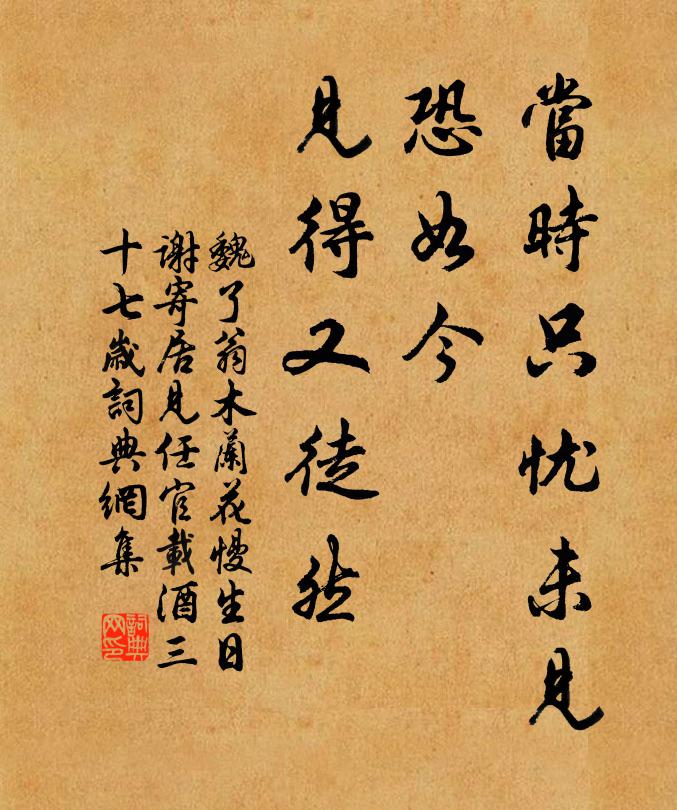 當時只忧未見
恐如今
見得又徒然
魏了翁木蘭花慢生日
謝寄居見任官載酒三
十七歲詞典網集
詞典网印